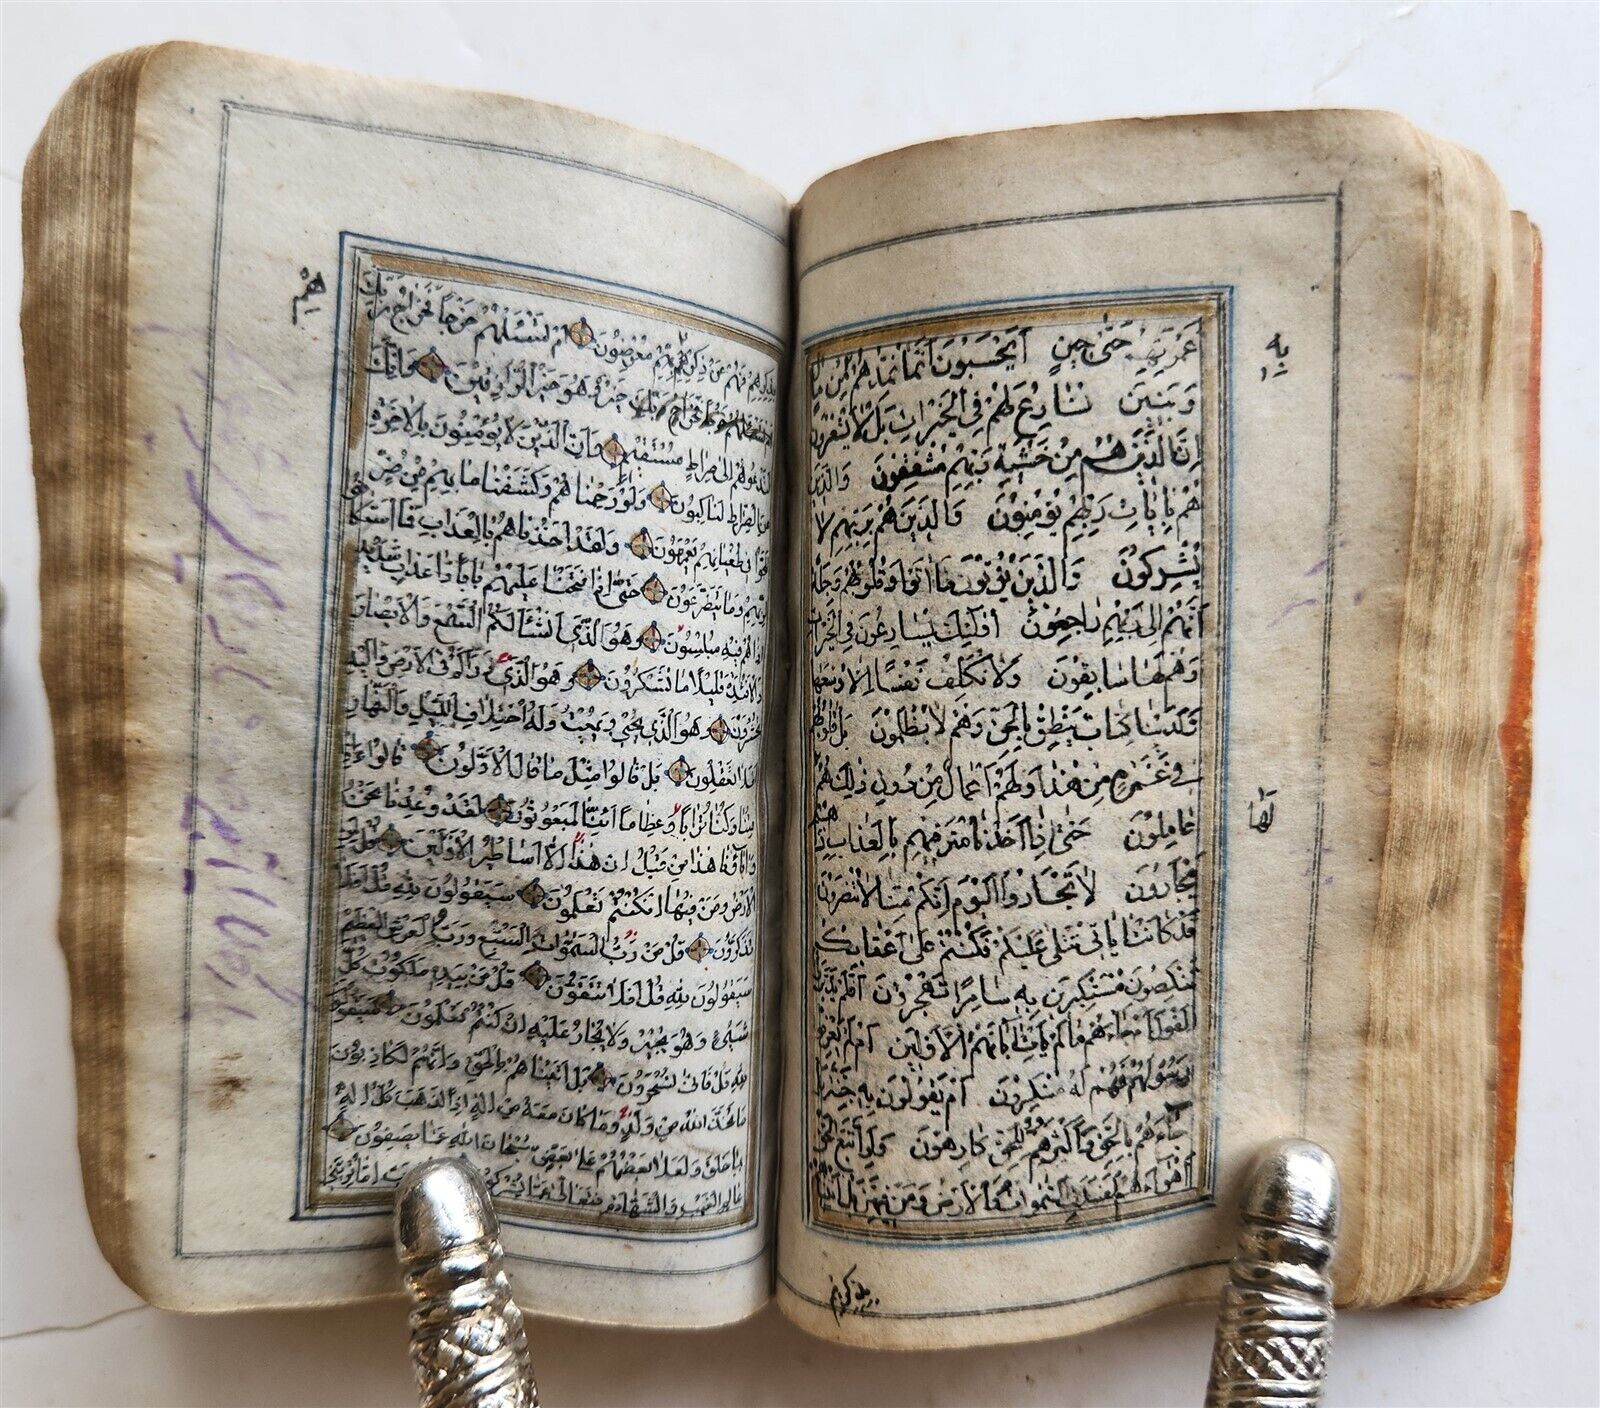 غمرتهم حتى حين أيحسبون أنما نمدهم من مال
به
وبنين نسارع لهم في الخيرات بل لا يشعرون
إن الذين هم من خشية ربهم مشفقون والذين
هم بآيات ربهم يؤمنون والذين هم بربهم لا
يشركون والذين يؤتون ما آتوا وقلوبهم وجلة
أنهم إلى ربهم راجعون أولئك يسارعون في الخيرات
وهم لها سابقون ولا نكلف نفسا إلا وسعها
ولدينا كتاب ينطق بالحق وهم لا يظلمون بل قلوبهم
في غمرة من هذا ولهم أعمال من دون ذلك هم
لها
عاملون حتى إذا أخذنا مترفيهم بالعذاب إذا هم
يجأرون لا تجأروا اليوم إنكم منا لا تنصرون
قد كانت آياتي تتلى عليكم فكنتم على أعقابكم
تنكصون مستكبرين به سامرا تهجرون أفلم يدبروا
القول أم جاءهم ما لم يأت آباءهم الأولين أم لم يعرفوا
رسولهم فهم له منكرون أم يقولون به جنة بل
جاءهم بالحق وأكثرهم للحق كارهون ولو اتبع الحق
أهواءهم لفسدت السموات والأرض ومن فيهن بل أتيناهم
بذكرهم
بذكرهم فهم عن ذكرهم معرضون أم تسئلهم خرجا فخراج ربك
هم
خير وهو خير الرازقين وإنك
لتدعوهم إلى صراط مستقيم وإن الذين لا يؤمنون بالآخرة
عن الصراط لناكبون ولو رحمناهم وكشفنا ما بهم من ضر
للجوا في طغيانهم يعمهون ولقد أخذناهم بالعذاب فما استكانوا
لربهم وما يتضرعون حتى إذا فتحنا عليهم بابا ذا عذاب شديد
إذا هم فيه مبلسون وهو الذي أنشأ لكم السمع والأبصار
والأفئدة قليلا ما تشكرون وهو الذي ذرأكم في الأرض وإليه
تحشرون وهو الذي يحيي ويميت وله اختلاف الليل والنهار
أفلا تعقلون بل قالوا مثل ما قال الأولون قالوا ءإذا
متنا وكنا ترابا وعظاما أئنا لمبعوثون لقد وعدنا نحن
وآباؤنا هذا من قبل إن هذا إلا أساطير الأولين قل لمن
الأرض ومن فيها إن كنتم تعلمون سيقولون لله قل أفلا
تذكرون قل من رب السموات السبع ورب العرش العظيم
سيقولون لله قل أفلا تتقون قل من بيده ملكوت كل
شيء وهو يجير ولا يجار عليه إن كنتم تعلمون سيقولون
لله قل فأنى تسحرون بل أتيناهم بالحق وإنهم لكاذبون
ما اتخذ الله من ولد وما كان معه من إله إذا لذهب كل إله
بما خلق ولعلا بعضهم على بعض سبحان الله عما يصفون
عالم الغيب والشهادة فتعالى عما يشركون